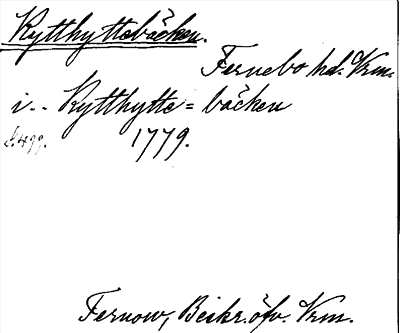 Rytthyttebäcken.
Fernebo hd. Vrm.
i.. Rytthytte=bäcken
S. 499. 1779.
Fernow, Beskr. öfv. Vrm.